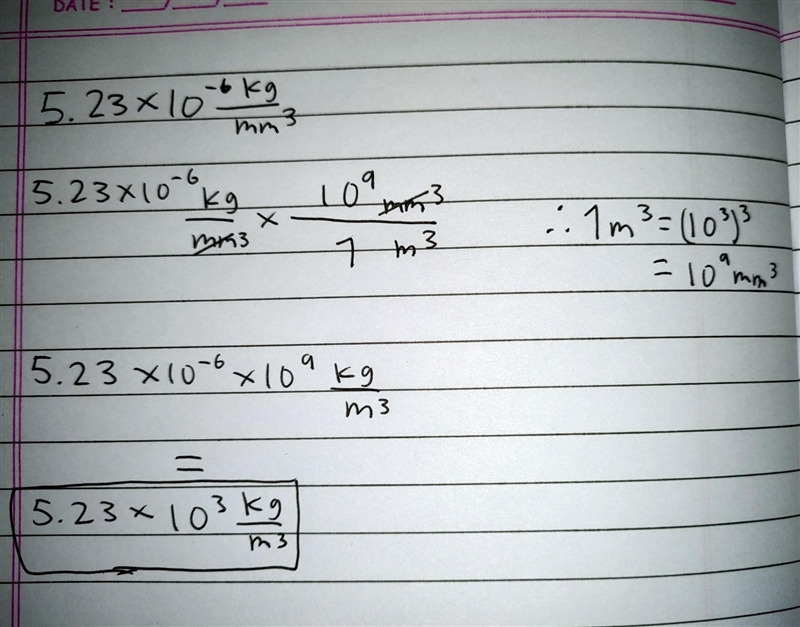 DATE : ___/___/___
5.23 × 10⁻⁶ kg/mm³
5.23 × 10⁻⁶ kg/mm³ × 10⁹ mm³/1 m³
∴ 1m³ = (10³)³
= 10⁹ mm³
5.23 × 10⁻⁶ × 10⁹ kg/m³
=
5.23 × 10³ kg/m³